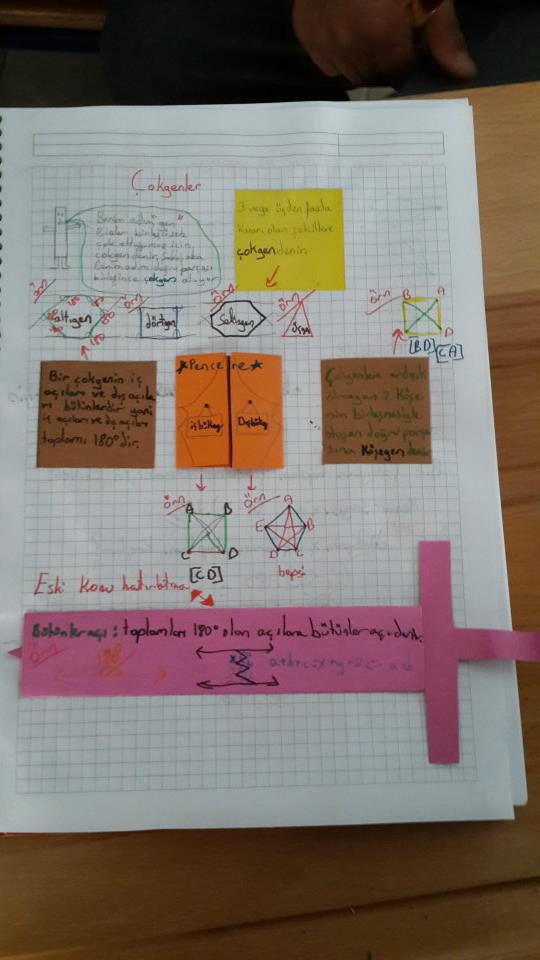 Çokgenler
Benim adım "gen"
Bizler birleşirsek
çok olduğumuz için
çokgen denir.
doğru parçası
birleşince çokgen oluyor
3 veya üçden fazla
kenarı olan şekillere
çokgen denir.
Örn
altıgen
Örn
dörtgen
Örn
Sekizgen
Örn
üçgen
Örn
B A
D
[BD] [CA]
Bir çokgenin iç
açıları ve dış açıla
rı bütünlerdir yani
iç açıları ve dış açılar
toplamı 180°dir.
★Pence re★
içbükey
Dışbükey
Çokgenlere ardışık
olmayan 2 köşe
nin birleşmesiyle
oluşan doğru parça
sına Köşegen denir
Örn
A B
C D
[CD]
Örn
A
E B
D C
hepsi
Eski Konu hatırlatma
Bütünler açı: toplamları 180° olan açılara bütünler açı denir.
Örn
180